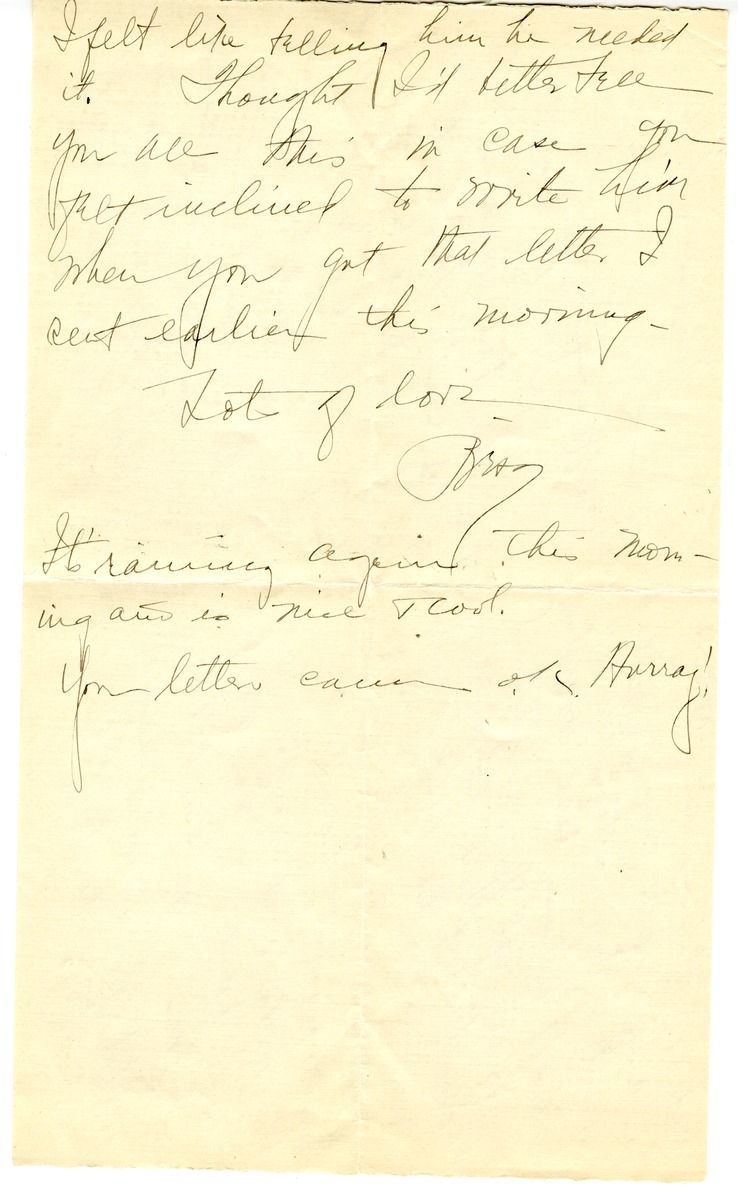 I felt like telling him he needed
it. Thought I'd better tell
you all this in case you
felt inclined to write him
when you got that letter I
sent earlier this morning-
Lots of love
It's raining again this morn-
ing and is nice & cool.
Your letter came o.k. Hurray!